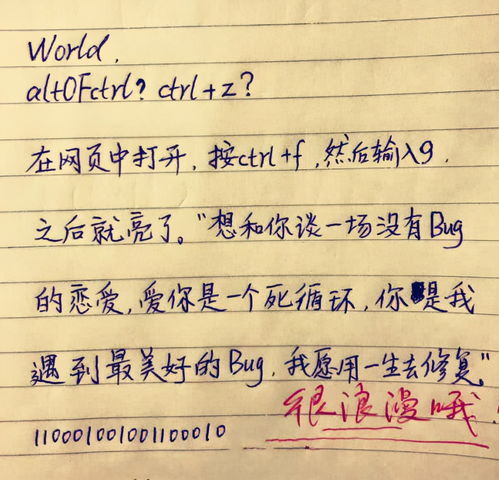 World,
alt0Fctrl? ctrl+z?
在网页中打开，按ctrl+f，然后输入9，
之后就亮了。"想和你谈一场没有Bug
的恋爱，爱你是一个死循环，你是我
遇到最美好的Bug，我愿用一生去修复。"
很浪漫哦！
110001001001100010